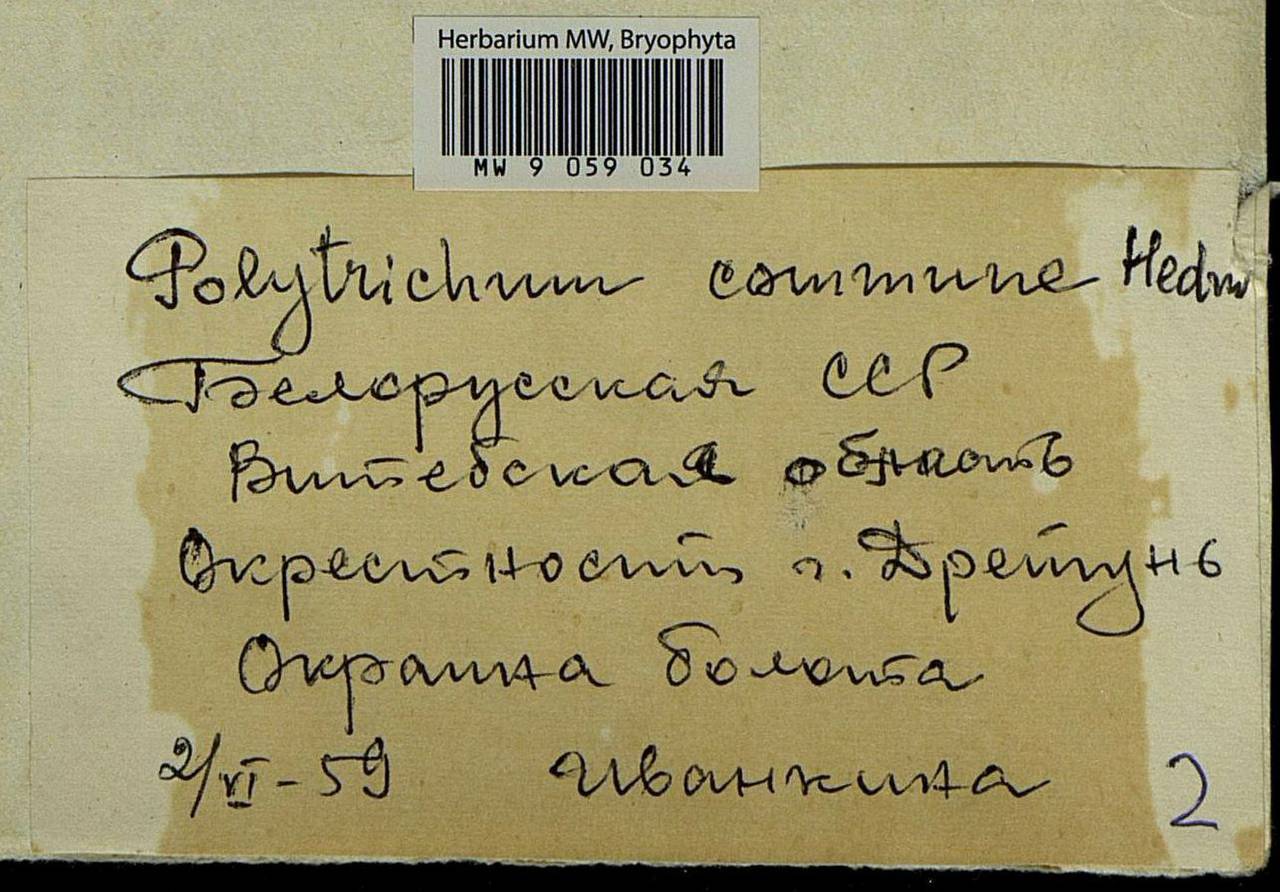 Herbarium MW, Bryophyta
MW 9 059 034
Polytrichum commune Hedw
Белорусская ССР
Витебская область
Окрестность г. Дретунь
Окраина болота
2/VI-59 Иванкина
2